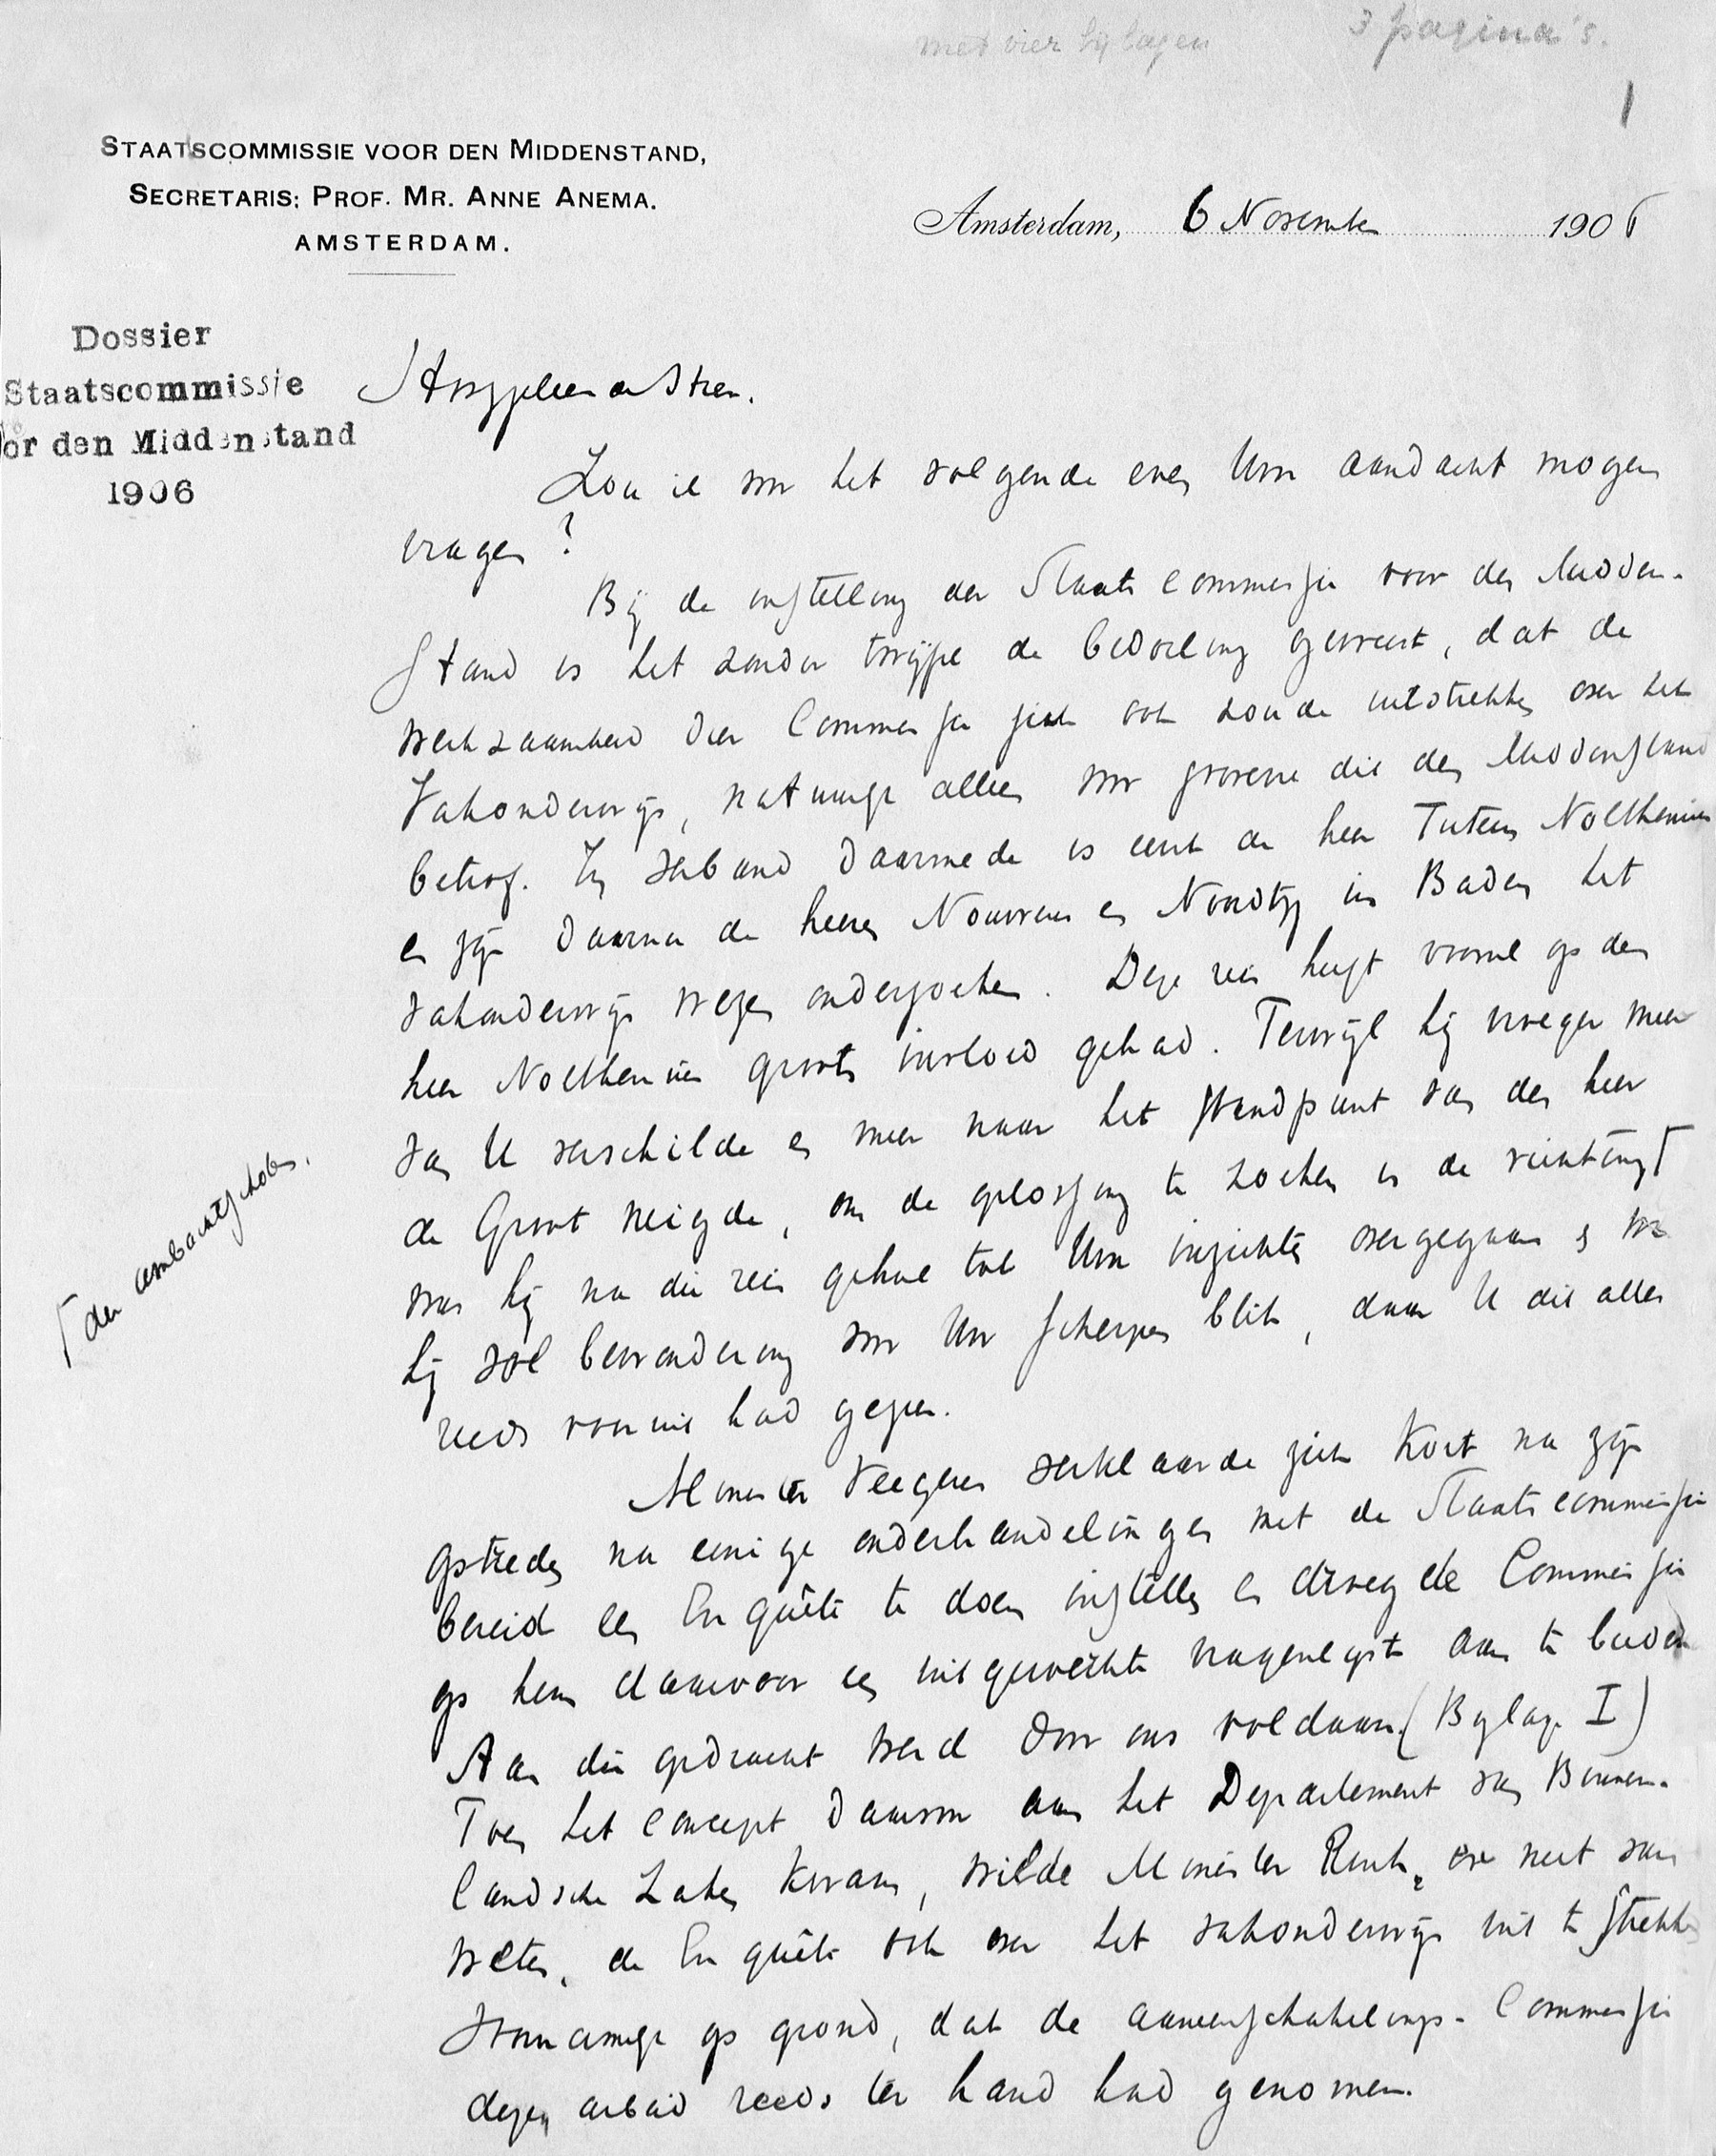 met vier bijlagen
3 pagina's.
1
STAATSCOMMISSIE VOOR DEN MIDDENSTAND,
SECRETARIS: PROF. MR. ANNE ANEMA.
AMSTERDAM.
Amsterdam, 6 November 1906
Dossier
Staatscommissie
or den Middenstand
1906
Hooggeleerde Heer.
Zou ik voor het volgende even Uw aandacht mogen
vragen?
Bij de instelling der Staatscommissie voor den Midden-
stand is het zonder twijfel de bedoeling geweest, dat de
werkzaamheid dier Commissie zich ook zoude uitstrekken over het
Vakonderwijs, natuurlijk alleen voor zooverre dit den Middenstand
betrof. In verband daarmede is eerst de heer Tutein Nolthenius
en zijn daarna de heeren Nouwens en Noordtzij in Baden het
vakonderwijs wezen onderzoeken. Deze reis heeft vooral op den
heer Nolthenius grooten invloed gehad. Terwijl hij vroeger meer
van U verschilde en meer naar het standpunt van den heer
de Groot neigde, om de oplossing te zoeken in de richting
der ambachtscholen,
was hij na die reis geheel tot Uw inzichten overgegaan en was
hij vol bewondering voor Uw scherpen blik, daar U dit alles
reeds vooruit had gezien.
Minister Veegens verklaarde zich kort na zijn
optreden na eenige onderhandelingen met de Staatscommissie
bereid een Enquête te doen instellen en droeg de Commissie
op hem daarvoor een uitgewerkte vragenlijst aan te bieden
Aan die opdracht werd door ons voldaan. (Bijlage I)
Toen het concept daarvan aan het Departement van Binnen-
landsche Zaken kwam, wilde Minister Rink er niet van
weten, de Enquête ook over het vakonderwijs uit te strekken
voornamelijk op grond, dat de ineenschakelings-Commissie
dezen arbeid reeds ter hand had genomen.